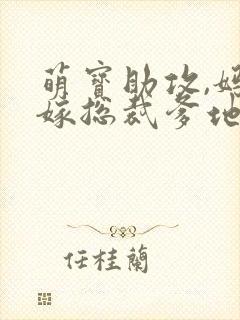 萌寶助攻,媽
嫁總裁爹地
任桂蘭